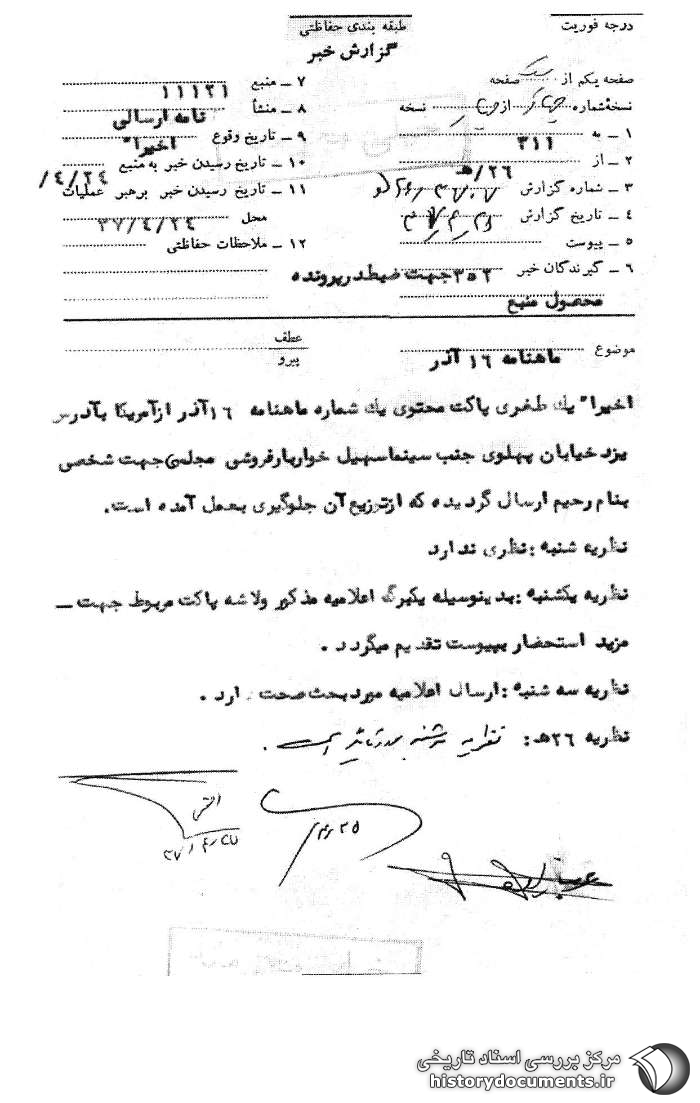 درجه فوریت
طبقه بندی حفاظتی
گزارش خبر
صفحه یکم از یک صفحه
نسخه شماره چهار از چهار نسخه
۱ ـ به ۳۱۱
۲ ـ از ۲۶/هـ
۳ ـ شماره گزارش
۴ ـ تاریخ گزارش
۵ ـ پیوست
۶ ـ گیرندگان خبر ۳۵۲ جهت ضبط در پرونده
محصول منبع
۷ ـ منبع ۱۱۱۲۱
۸ ـ منشأ نامه ارسالی
۹ ـ تاریخ وقوع اخیرا"
۱۰ ـ تاریخ رسیدن خبر به منبع ۴/۲۴/
۱۱ ـ تاریخ رسیدن خبر برهبر عملیات
محل ۳۷/۴/۲۴
۱۲ ـ ملاحظات حفاظتی
موضوع ماهنامه ۱۶ آذر
عطف
پیرو
اخیرا" یك طغری پاکت محتوی یك شماره ماهنامه ۱۶ آذر ازآمریکا بآدرس
یزد خیابان پهلوی جنب سینما سهیل خواربارفروشی مجلسی جهت شخصی
بنام رحیم ارسال گردیده که ازتوزیع آن جلوگیری بعمل آمده است.
نظریه شنبه : نظری ندارد
نظریه یکشنبه : بدینوسیله یکبرگ اعلامیه مذکور ولاشه پاکت مربوط جهت ـ
مزید استحضار بپیوست تقدیم میگردد .
نظریه سه شنبه : ارسال اعلامیه مورد بحث صحت دارد .
نظریه ۲۶هـ : نظریه سه شنبه مورد تائید است .
مرکز بررسی اسناد تاریخی
historydocuments.ir